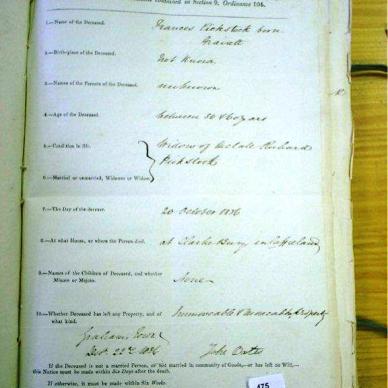 contained in Section 9, Ordinance 104.
1.—Name of the Deceased.
Frances Pickstock born
Gravett
2.—Birth-place of the Deceased.
Not Known
3.—Names of the Parents of the Deceased.
unknown
4.—Age of the Deceased.
between 50 & 60 years
5.—Condition in life.
Widow of the late Richard
Pickstock
6.—Married or unmarried, Widower or Widow.
7.—The Day of the decease.
20 October 1876
8.—At what House, or where the Person died.
at Clarke Bury
9.—Names of the Children of Deceased, and whether
Minors or Majors.
None
10.—Whether Deceased has left any Property, and of
what kind.
Immoveable & Moveable Property
Graham Town
1876
John Oates
If the Deceased is not a married Person, or not married in community of Goods,—or has left no Will,—
this Notice must be made within Six Days after the death.
If otherwise, it must be made within Six Weeks.
475